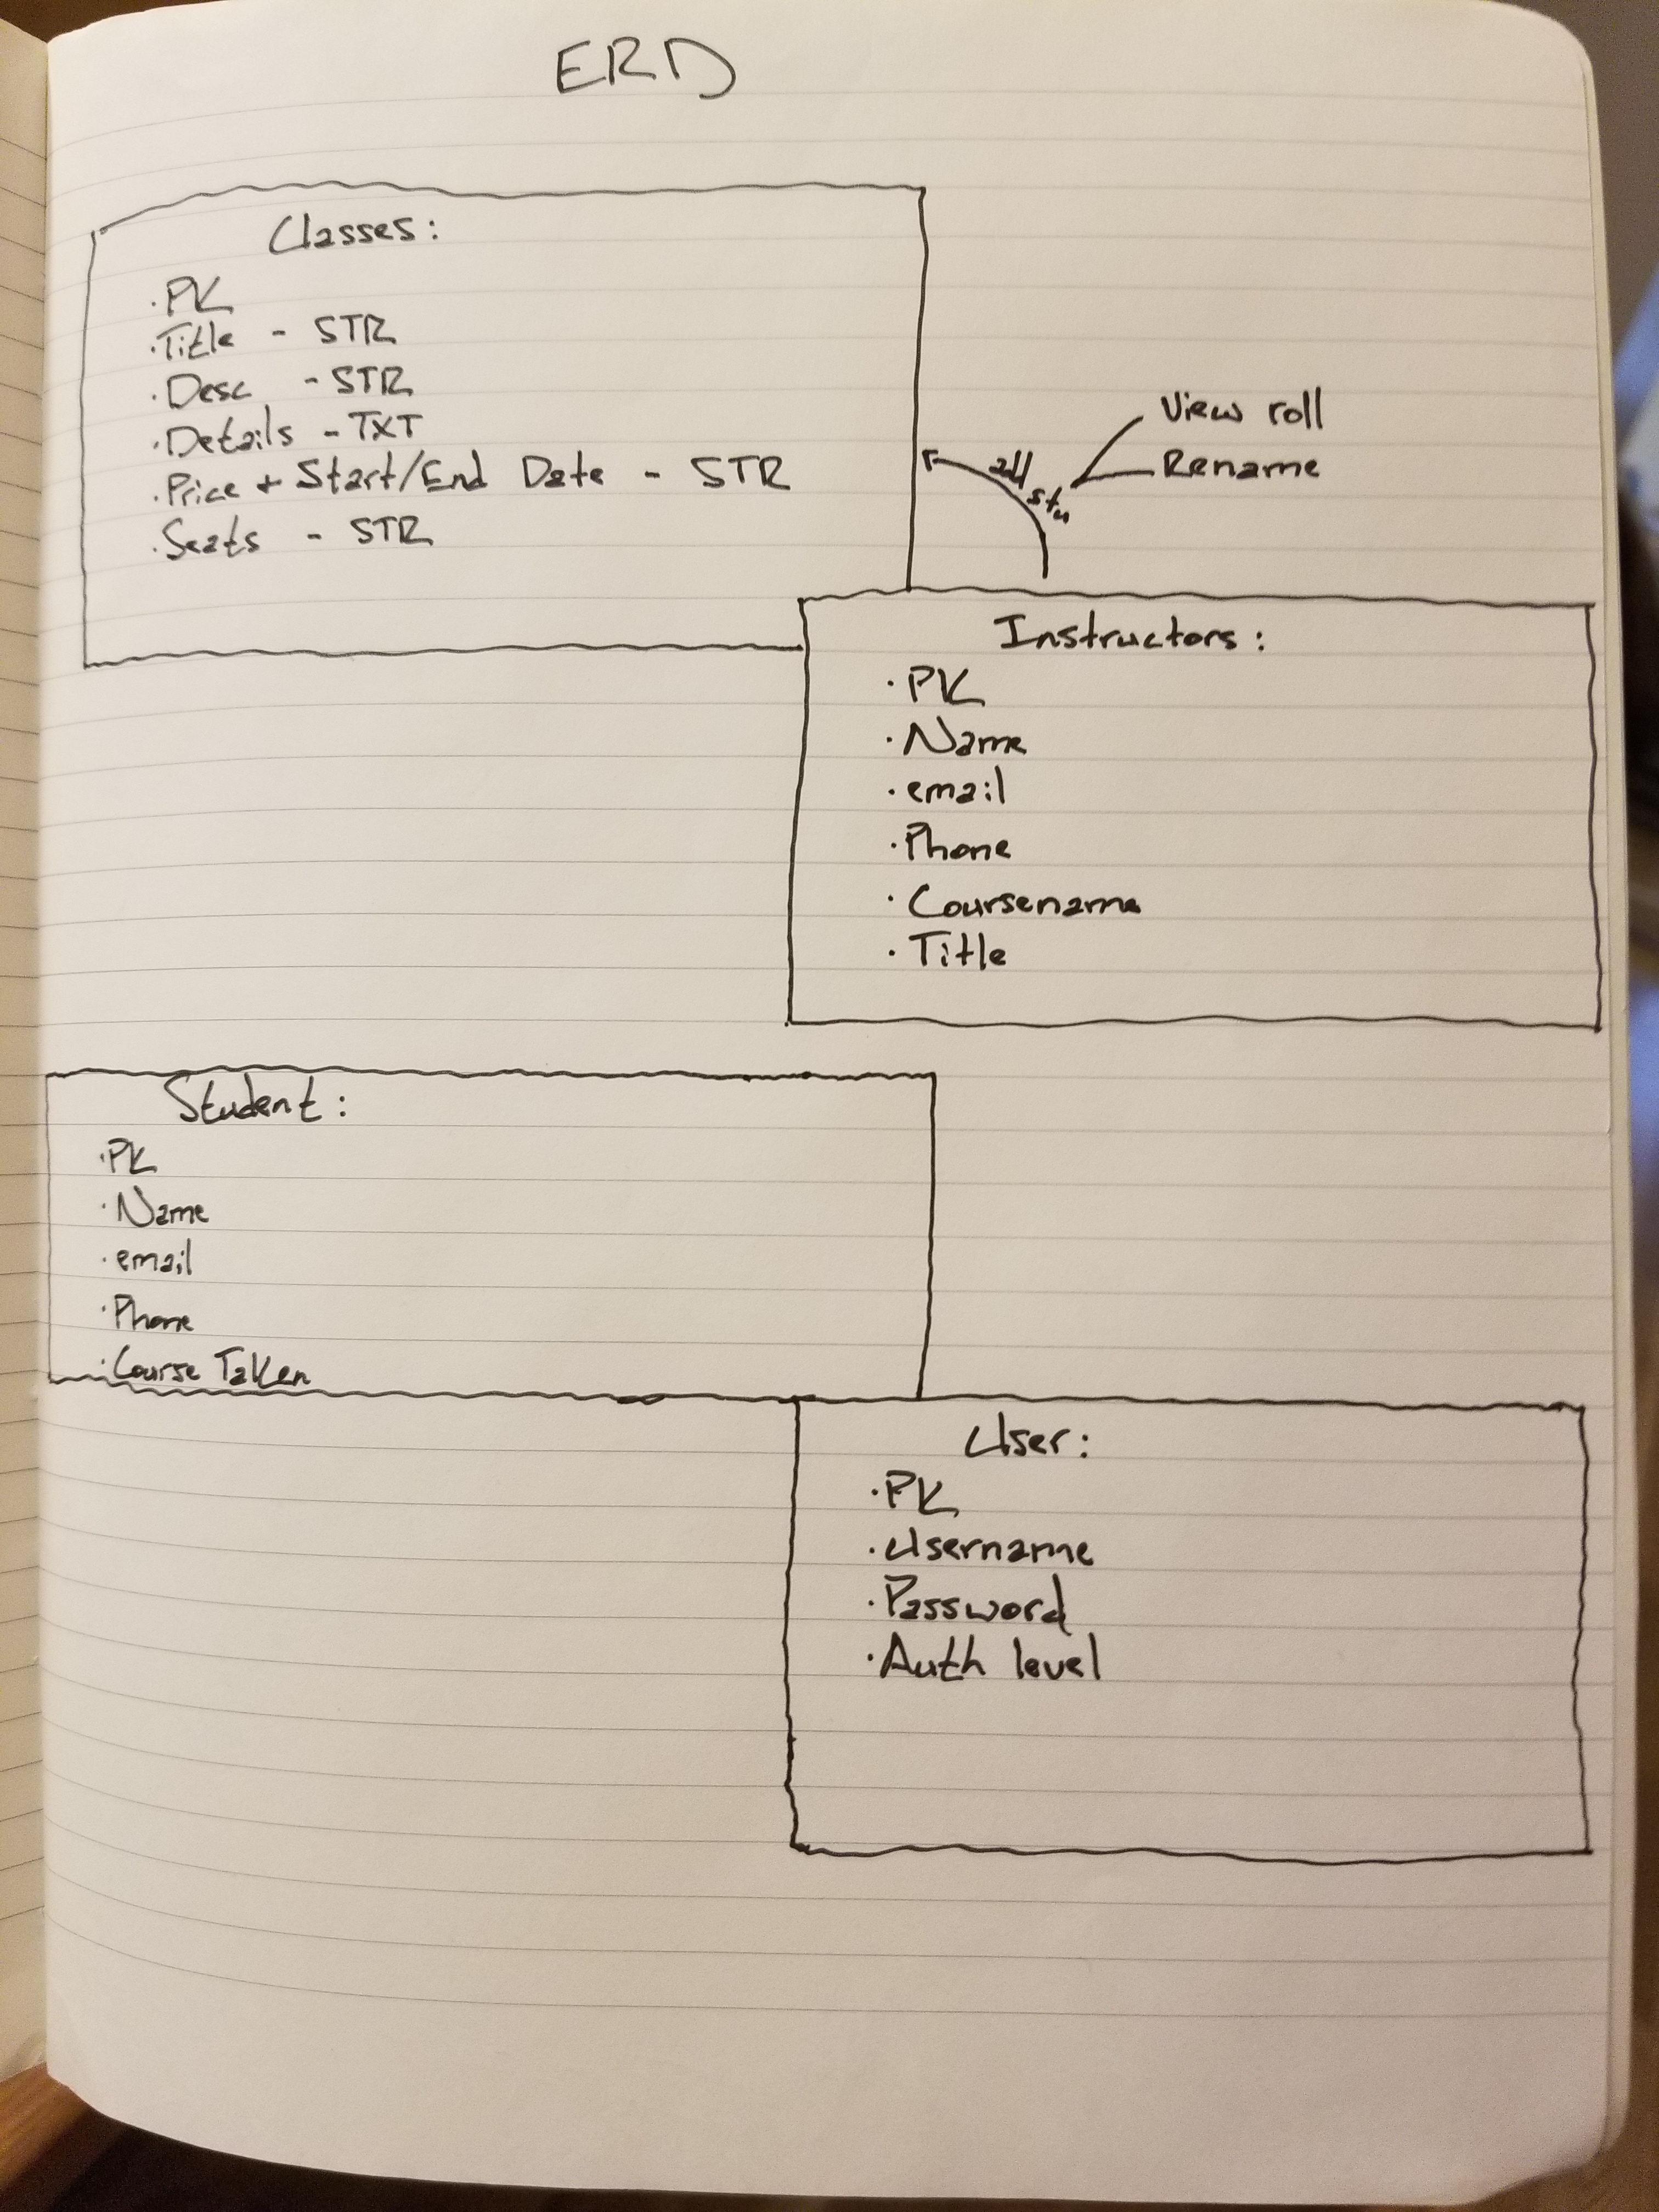 ERD
Classes:
·PK
·Title - STR
·Desc - STR
·Details - TXT
·Price + Start/End Date - STR
·Seats - STR
View roll
Rename
all stu
Instructors:
·PK
·Name
·email
·Phone
·Coursename
·Title
Student:
·PK
·Name
·email
·Phone
·Course Taken
User:
·PK
·Username
·Password
·Auth level